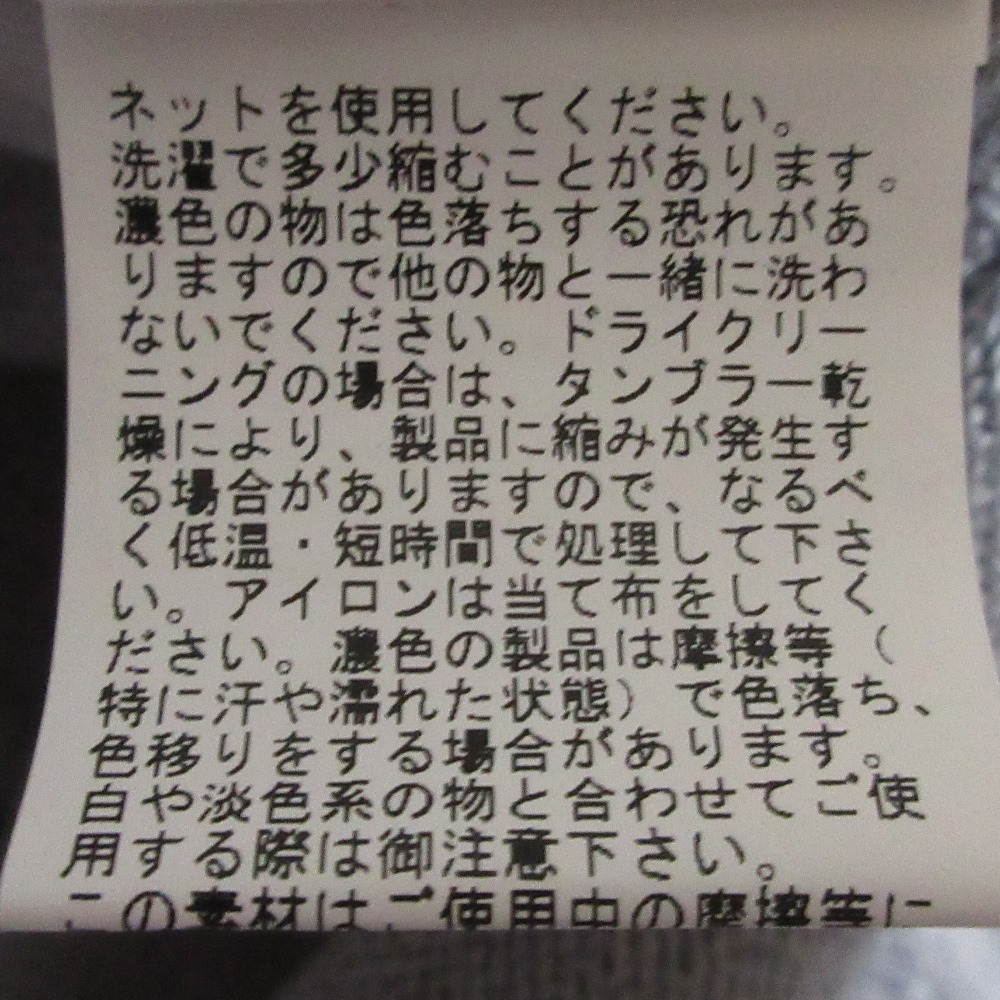 ネットを使用してください。
洗濯で多少縮むことがあります。
濃色の物は色落ちする恐れがあ
りますので他の物と一緒に洗わ
ないでください。ドライクリー
ニングの場合は、タンブラー乾
燥により、製品に縮みが発生す
る場合がありますので、なるべ
く低温・短時間で処理して下さ
い。アイロンは当て布をしてく
ださい。濃色の製品は摩擦等（
特に汗や濡れた状態）で色落ち、
色移りをする場合があります。
白や淡色系の物と合わせてご使
用する際は御注意下さい。
この素材はご使用中の摩擦等に